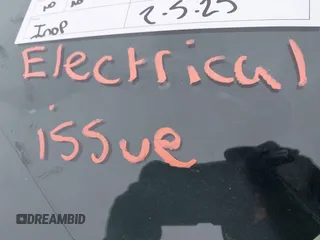 No No
Inop 2-5-25
Electrical
issue
DREAMBID